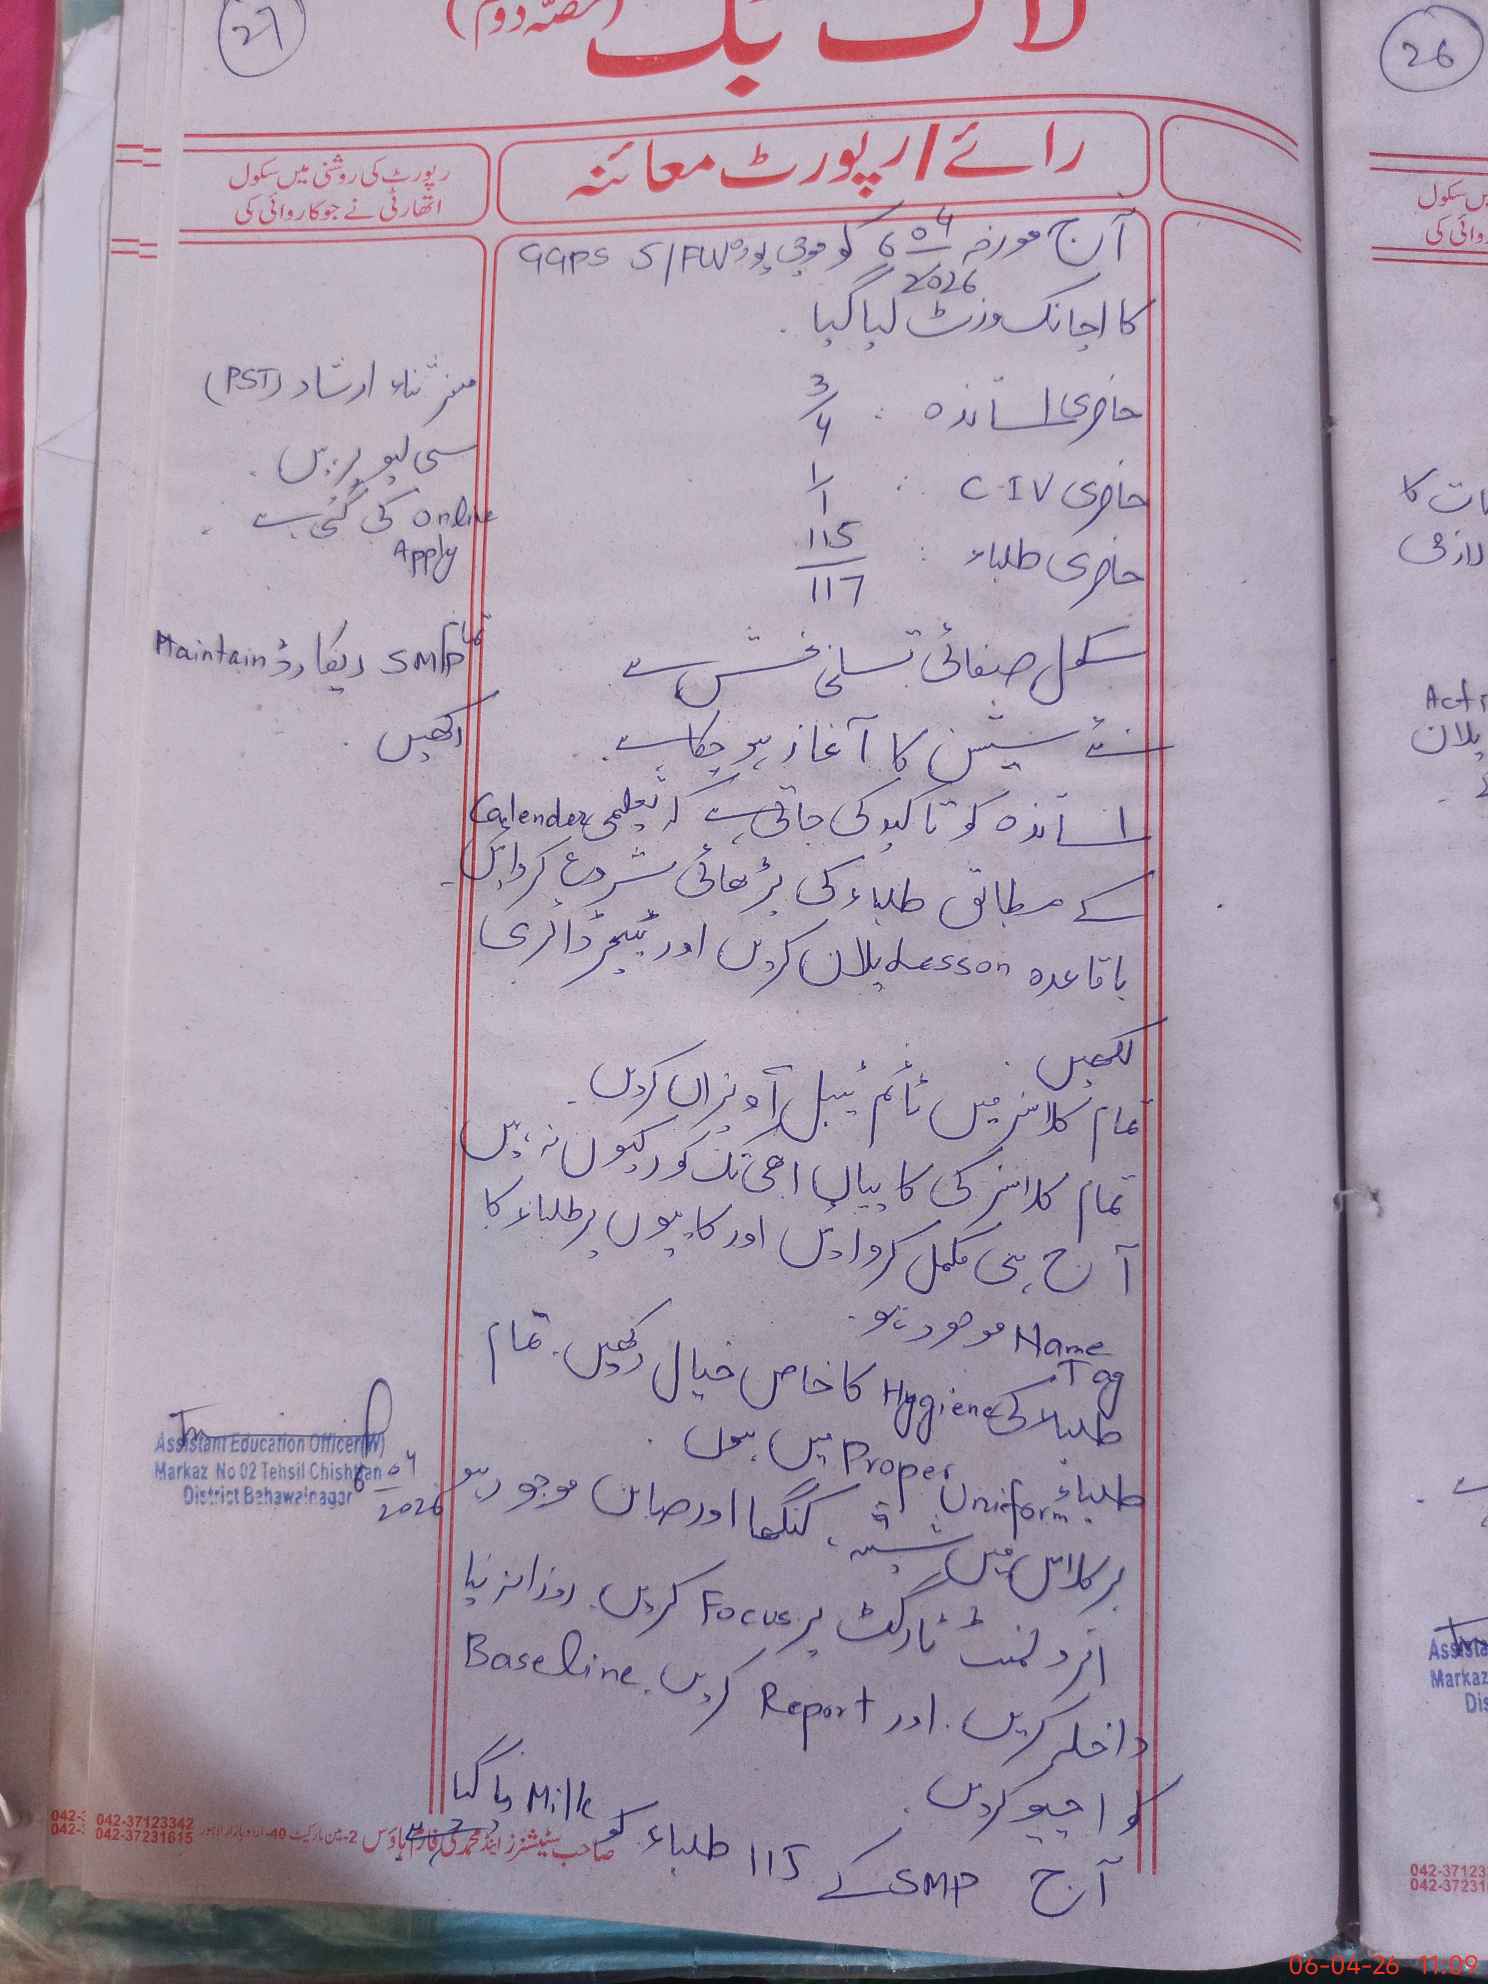 27
لاگ بک (حصّہ دوم)
رائے/رپورٹ معائنہ
رپورٹ کی روشنی میں سکول
اتھارٹی نے جو کاروائی کی
آج مورخہ 6 04 2026 کو موجی پورہ GGPS 5/FW
کا اچانک وزٹ کیا گیا.
حاضری اساتذہ : 3/4
حاضری C-IV : 1/1
حاضری طلباء : 115/117
سکول صفائی تسلی بخش ہے
نئے سیشن کا آغاز ہو چکا ہے.
اساتذہ کو تاکید کی جاتی ہے کہ تعلیمی Calender
کے مطابق طلباء کی پڑھائی شروع کروائیں.
باقاعدہ Lesson پلان کریں اور ٹیچر ڈائری
لکھیں.
تمام کلاسز میں ٹائم ٹیبل آویزاں کریں.
تمام کلاسز کی کاپیاں ابھی تک کور کیوں نہ ہیں
آج ہی مکمل کروائیں اور کاپیوں پر طلباء کا
Name Tag موجود ہو.
طلباء کی Hygiene کا خاص خیال رکھیں. تمام
طلباء Proper Uniform میں ہوں.
ہر کلاس میں شیشہ، کنگھا اور صابن موجود ہو
انرولمنٹ ٹارگٹ پر Focus کریں. روزانہ نیا
داخلہ کریں. اور Report کریں. Baseline
کو اچیو کریں.
آج SMP کے 115 طلباء کو Milk دیا گیا
ہے
مسز ثناء ارشاد (PST)
سی لیو پر ہیں.
Online Apply کی گئی ہے.
تمام SMP ریکارڈ Maintain
رکھیں.
Assistant Education Officer(W)
Markaz No 02 Tehsil Chishtian
District Bahawalnagar
6 04 2026
صاحب سٹیشنرز اینڈ محمدی فارم ہاؤس 2-مین مارکیٹ 40-اردو بازار لاہور
042-37123342
042-37231615
26
میں سکول
روائی کی
ات کا
لازمی
پلان
Assista
Markaz
Dis
042-37123
042-37231
06-04-26 11:09